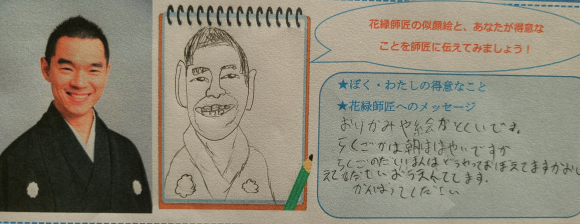 花緑師匠の似顔絵と、あなたが得意な
ことを師匠に伝えてみましょう！
★ぼく・わたしの得意なこと
★花緑師匠へのメッセージ
おりがみや絵がとくいです。
らくごかは朝ははやいですか
らくごのだいほんはどうやっておぼえてますかおし
えてくださいおうえんしてます。
がんばってください